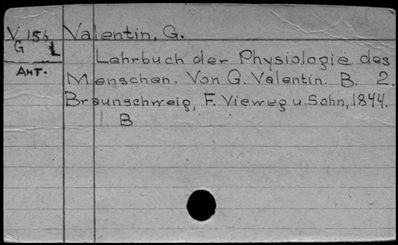 V 156 Valentin, G.
G L
Lehrbuch der Physiologie des
Ант. Menschen. Von G. Valentin. B. 2.
Braunschweig, F. Vieweg u. Sohn, 1844.
1 B